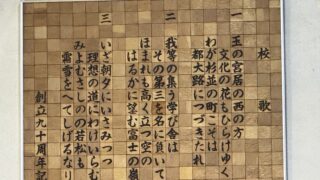 校歌
一 玉の宮居の西の方
文化の花もひらけゆく
わが杉並の町こそは
都大路につづきたれ
二 我等の集う学び舎は
その第三を名に負いて
ほまれも高く立つ空の
はるかに望む富士の嶺
三 いざ朝夕にいそみつつ
理想の道にわけいらむ
みよむさしのの若松も
霜雪をへてしげるなり
創立九十周年記